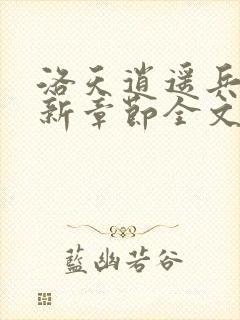 洛天逍遥兵
新章节全文
蓝幽若谷